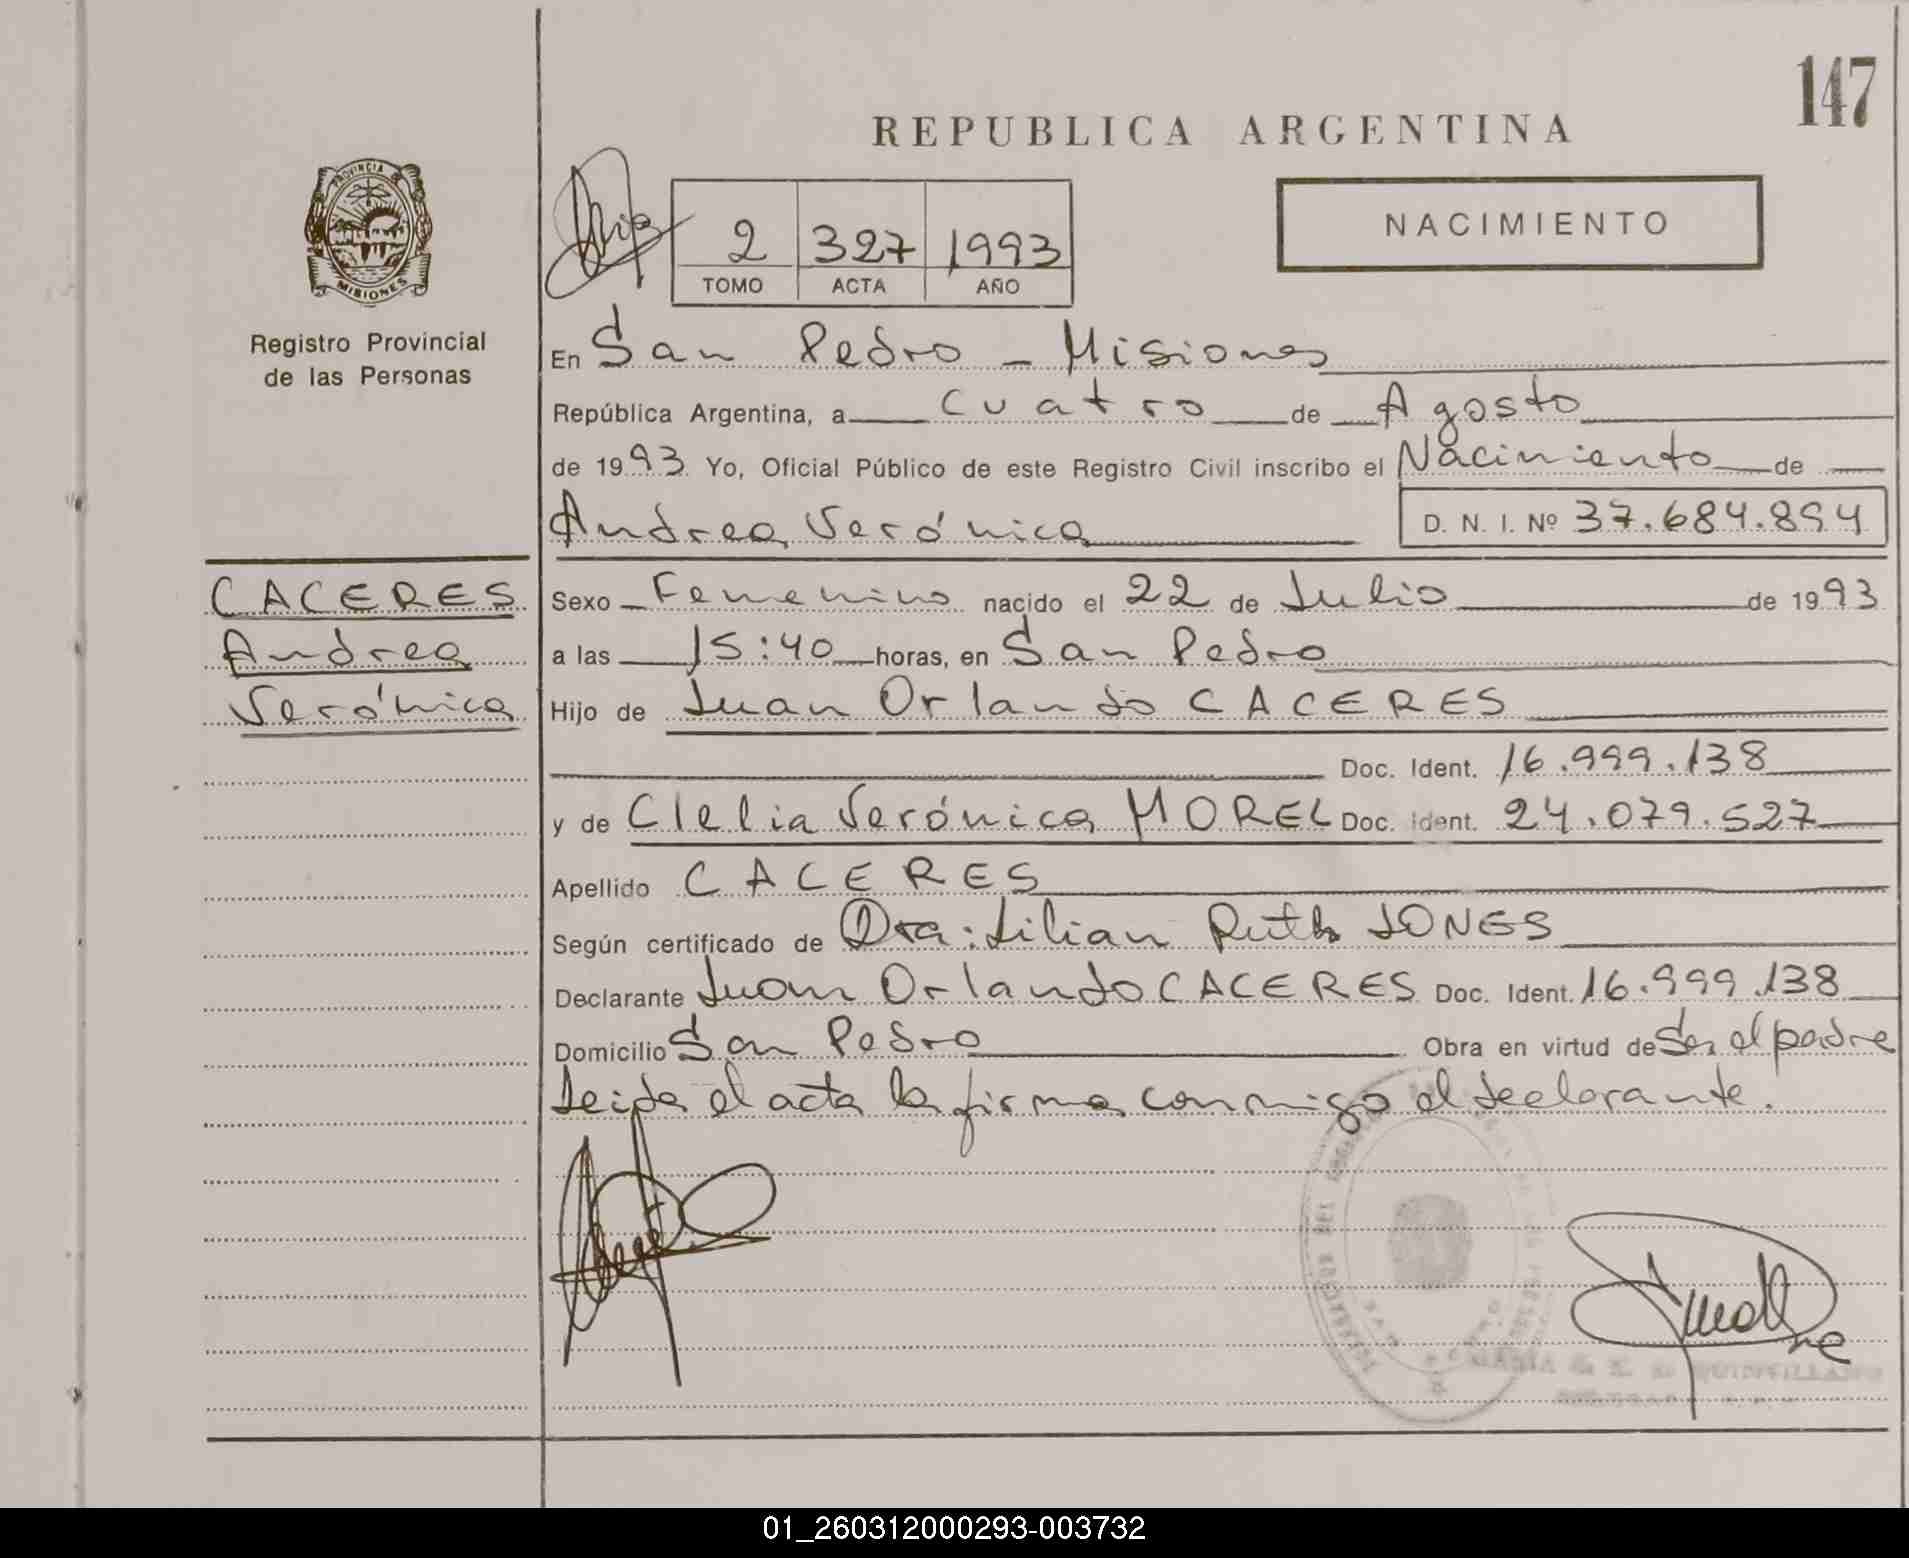 147
REPUBLICA ARGENTINA
NACIMIENTO
PROVINCIA
MISIONES
Registro Provincial
de las Personas
2 327 1993
TOMO ACTA AÑO
En San Pedro - Misiones
República Argentina, a cuatro de Agosto
de 1993 Yo, Oficial Público de este Registro Civil inscribo el Nacimiento de
Andrea Verónica D. N. I. Nº 37.684.894
CACERES
Andrea
Verónica
Sexo Femenino nacido el 22 de Julio de 1993
a las 15:40 horas, en San Pedro
Hijo de Juan Orlando CACERES
Doc. Ident. 16.999.138
y de Clelia Verónica MOREL Doc. Ident. 24.079.527
Apellido CACERES
Según certificado de Dra. Lilian Ruth JONES
Declarante Juan Orlando CACERES Doc. Ident. 16.999.138
Domicilio San Pedro Obra en virtud de Ser el padre
Leída el acta la firma conmigo el declarante.
01_260312000293-003732